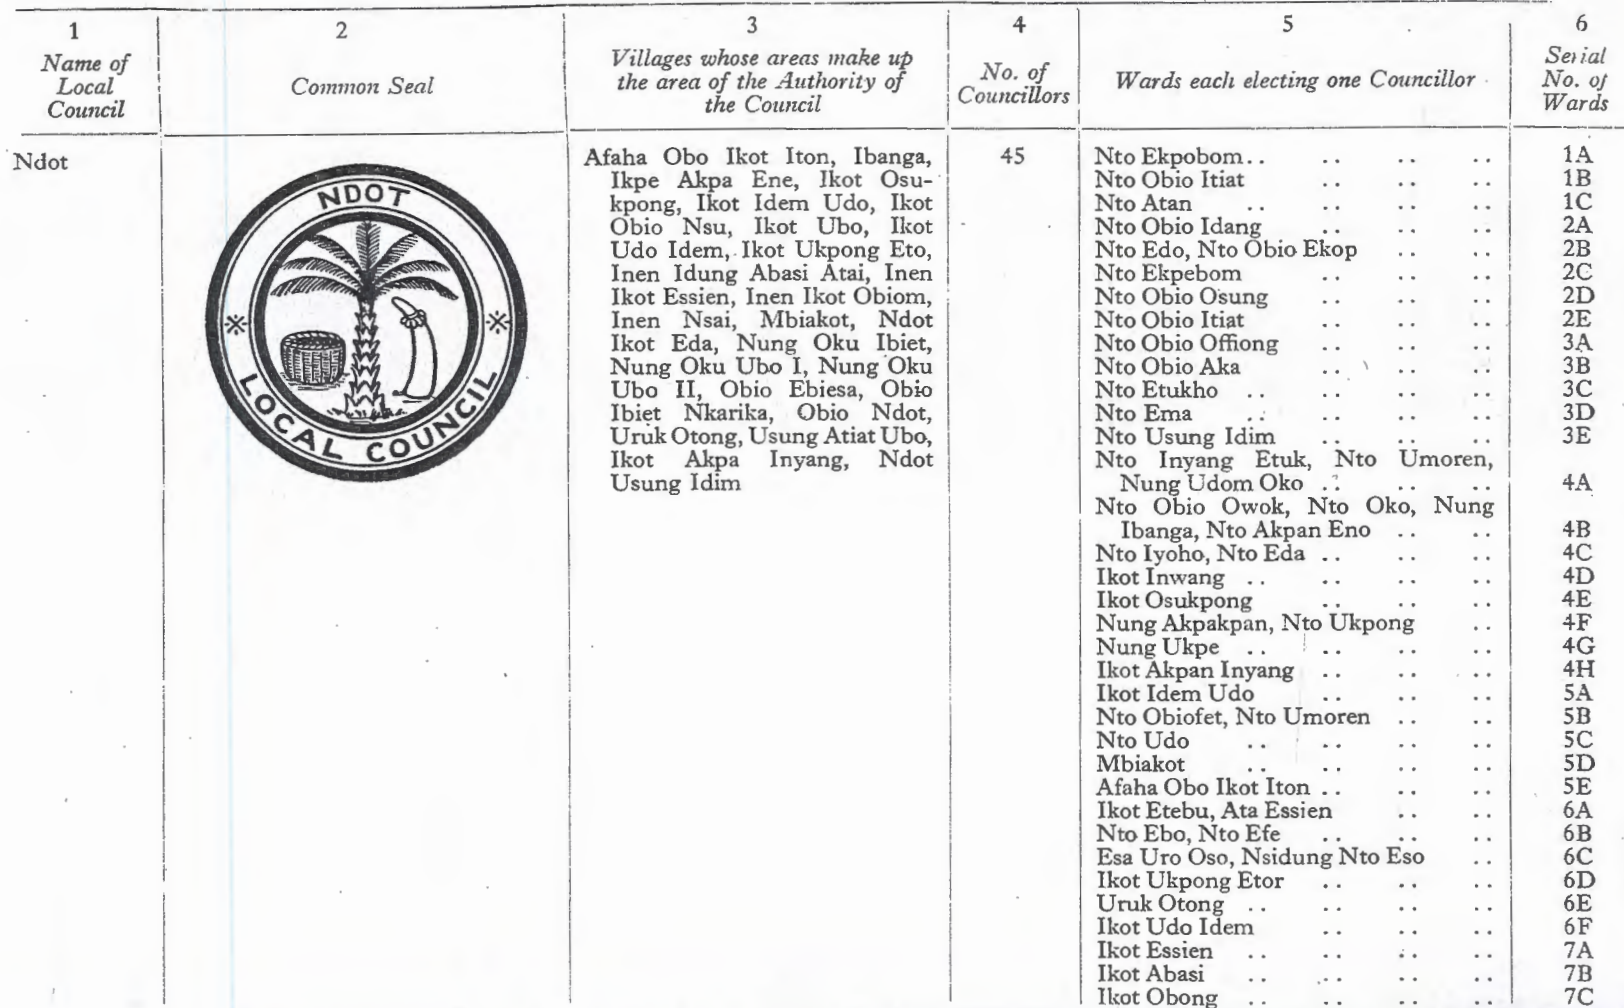 1 2 3 4 5 6
Name of Local Council
Common Seal
Villages whose areas make up the area of the Authority of the Council
No. of Councillors
Wards each electing one Councillor
Serial No. of Wards
Ndot
NDOT
LOCAL COUNCIL
Afaha Obo Ikot Iton, Ibanga,
Ikpe Akpa Ene, Ikot Osu-
kpong, Ikot Idem Udo, Ikot
Obio Nsu, Ikot Ubo, Ikot
Udo Idem, Ikot Ukpong Eto,
Inen Idung Abasi Atai, Inen
Ikot Essien, Inen Ikot Obiom,
Inen Nsai, Mbiakot, Ndot
Ikot Eda, Nung Oku Ibiet,
Nung Oku Ubo I, Nung Oku
Ubo II, Obio Ebiesa, Obio
Ibiet Nkarika, Obio Ndot,
Uruk Otong, Usung Atiat Ubo,
Ikot Akpa Inyang, Ndot
Usung Idim
45
Nto Ekpobom .. .. .. .. 1A
Nto Obio Itiat .. .. .. 1B
Nto Atan .. .. .. .. 1C
Nto Obio Idang .. .. .. 2A
Nto Edo, Nto Obio Ekop .. .. 2B
Nto Ekpebom .. .. .. 2C
Nto Obio Osung .. .. .. 2D
Nto Obio Itiat .. .. .. 2E
Nto Obio Offiong .. .. .. 3A
Nto Obio Aka .. .. .. 3B
Nto Etukho .. .. .. .. 3C
Nto Ema .. .. .. .. 3D
Nto Usung Idim .. .. .. 3E
Nto Inyang Etuk, Nto Umoren,
Nung Udom Oko .. .. .. 4A
Nto Obio Owok, Nto Oko, Nung
Ibanga, Nto Akpan Eno .. .. 4B
Nto Iyoho, Nto Eda .. .. .. 4C
Ikot Inwang .. .. .. .. 4D
Ikot Osukpong .. .. .. 4E
Nung Akpakpan, Nto Ukpong .. 4F
Nung Ukpe .. .. .. .. 4G
Ikot Akpan Inyang .. .. .. 4H
Ikot Idem Udo .. .. .. 5A
Nto Obiofet, Nto Umoren .. .. 5B
Nto Udo .. .. .. .. 5C
Mbiakot .. .. .. .. 5D
Afaha Obo Ikot Iton .. .. .. 5E
Ikot Etebu, Ata Essien .. .. 6A
Nto Ebo, Nto Efe .. .. .. 6B
Esa Uro Oso, Nsidung Nto Eso .. 6C
Ikot Ukpong Etor .. .. .. 6D
Uruk Otong .. .. .. .. 6E
Ikot Udo Idem .. .. .. 6F
Ikot Essien .. .. .. .. 7A
Ikot Abasi .. .. .. .. 7B
Ikot Obong .. .. .. .. 7C